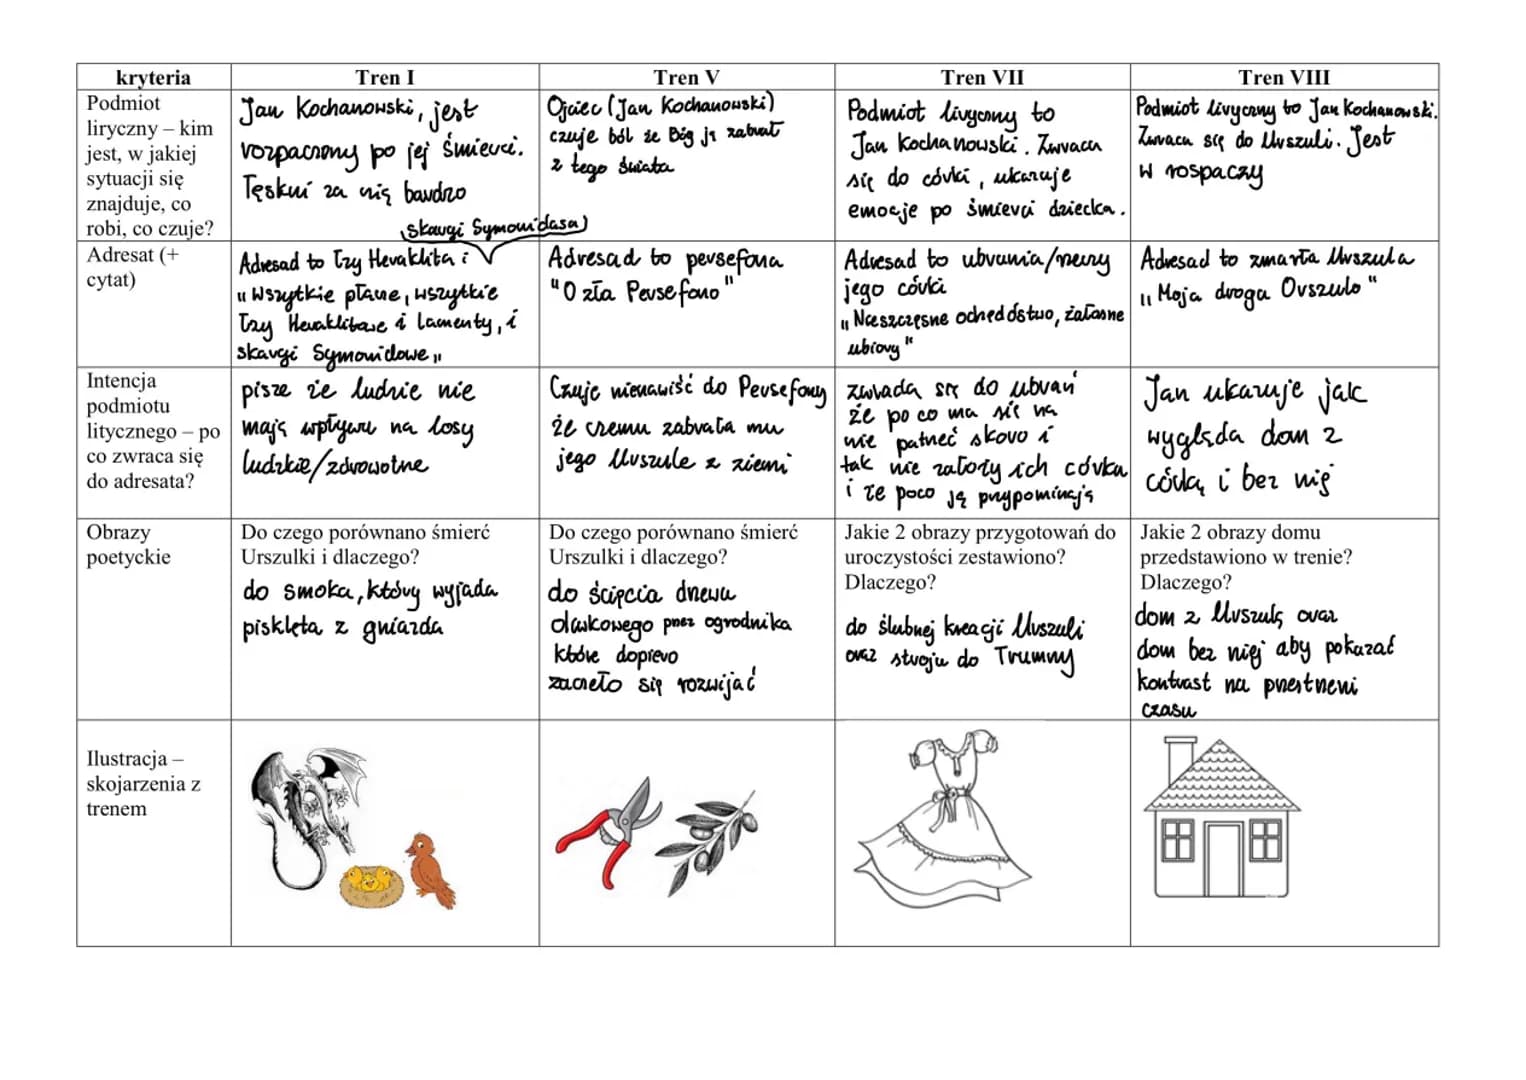 kryteria
Tren I
Tren V
Tren VII
Tren VIII
Podmiot
liryczny – kim
jest, w jakiej
sytuacji się
znajduje, co
robi, co czuje?
Jan Kochanowski, jest
rozpaczony po jej śmierci.
Tęskni za nią bardzo
Ojciec (Jan Kochanowski)
czuje ból że Bóg ją zabrał
z tego świata
Podmiot liryczny to
Jan Kochanowski. Zwraca
się do córki, ukazuje
emocje po śmierci dziecka.
Podmiot liryczny to Jan Kochanowski.
Zwraca się do Urszuli. Jest
w rospaczy
Adresat (+
cytat)
skargi Symonidasa)
Adresad to łzy Heraklita i
"Wszytkie płacze, wszytkie
łzy Heraklitowe i lamenty, i
skargi Symonidowe"
Adresad to persefona
"O zła Persefono"
Adresad to ubrania/rzeczy
jego córki
"Nieszczęsne ochędóstwo, żałosne
ubiory"
Adresad to zmarła Urszula
"Moja droga Orszulo"
Intencja
podmiotu
litycznego – po
co zwraca się
do adresata?
pisze że ludzie nie
mają wpływu na losy
ludzkie/zdrowotne
Czuje nienawiść do Persefony
że czemu zabrała mu
jego Urszule z ziemi
zwrada się do ubrań
że po co ma się na
nie patrzeć skoro i
tak nie założy ich córka
i że poco ją przypominają
Jan ukazuje jak
wygląda dom z
córką i bez nią
Obrazy
poetyckie
Do czego porównano śmierć
Urszulki i dlaczego?
do smoka, który wyjada
pisklęta z gniazda
Do czego porównano śmierć
Urszulki i dlaczego?
do ścięcia drzewa
oliwkowego przez ogrodnika
które dopiero
zaczeło się rozwijać
Jakie 2 obrazy przygotowań do
uroczystości zestawiono?
Dlaczego?
do ślubnej kreacji Urszuli
oraz stroju do Trumny
Jakie 2 obrazy domu
przedstawiono w trenie?
Dlaczego?
dom z Urszulą oraz
dom bez niej aby pokazać
kontrast na przestrzeni
czasu
Ilustracja –
skojarzenia z
trenem